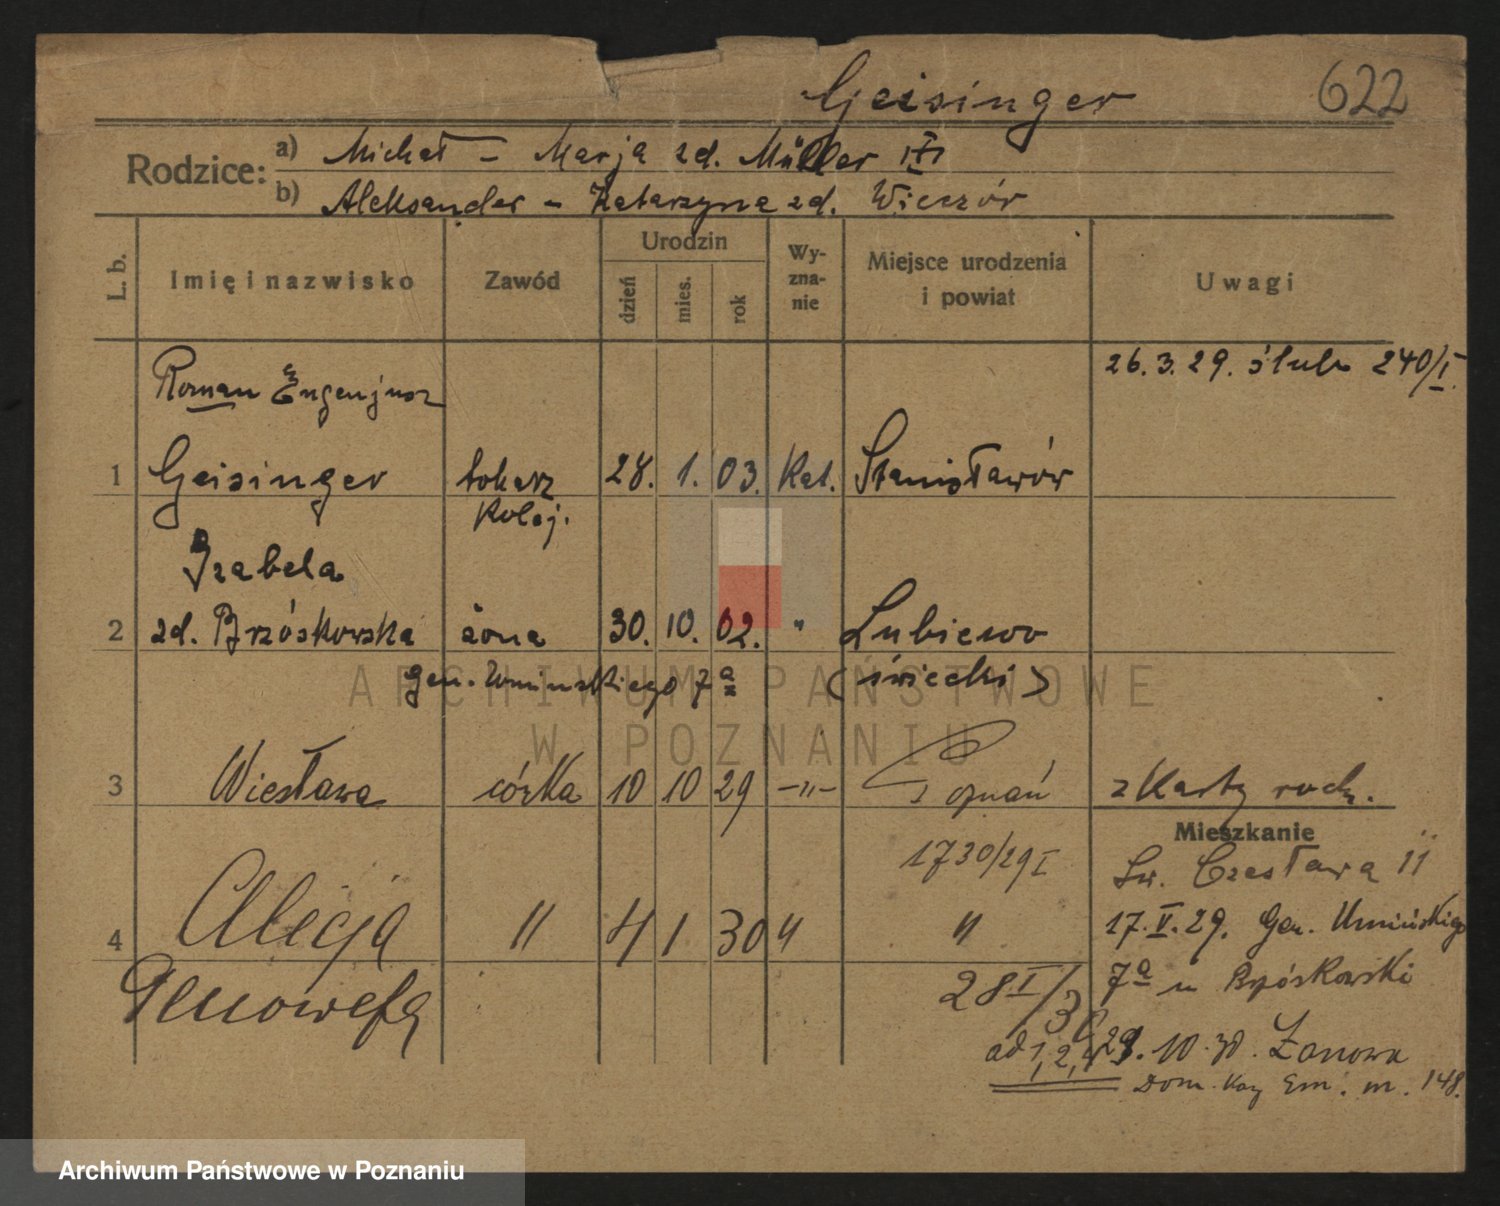 Geisinger 622
Rodzice: a) Michał – Marja zd. Müller III
b) Aleksander – Katarzyna zd. Wieczór
L. b. Imię i nazwisko Zawód Urodzin dzień mies. rok Wy-zna-nie Miejsce urodzenia i powiat Uwagi
26.3.29. ślub 240/I.
Roman Eugenjusz
1 Geisinger tokarz 28. 1. 03. Kat. Stanisławów
kolej.
Izabela
2 zd. Brzóskowska żona 30. 10. 02. " Lubiewo
gen. Umińskiego 7a (świecki)
3 Wiesława córka 10 10 29 –"– Poznań z Karty rodz.
Mieszkanie
1730/29 I Św. Czesława 11
4 Alicja " 4 1 30 " " 17.V.29. Gen. Umińskiego
Genowefa 28 I/30 7a u Brzóskowski
ad 1, 2, 29.10.30. Łanowa
Dom. Kol. Em. m. 148.
ARCHIWUM PAŃSTWOWE
W POZNANIU
Archiwum Państwowe w Poznaniu